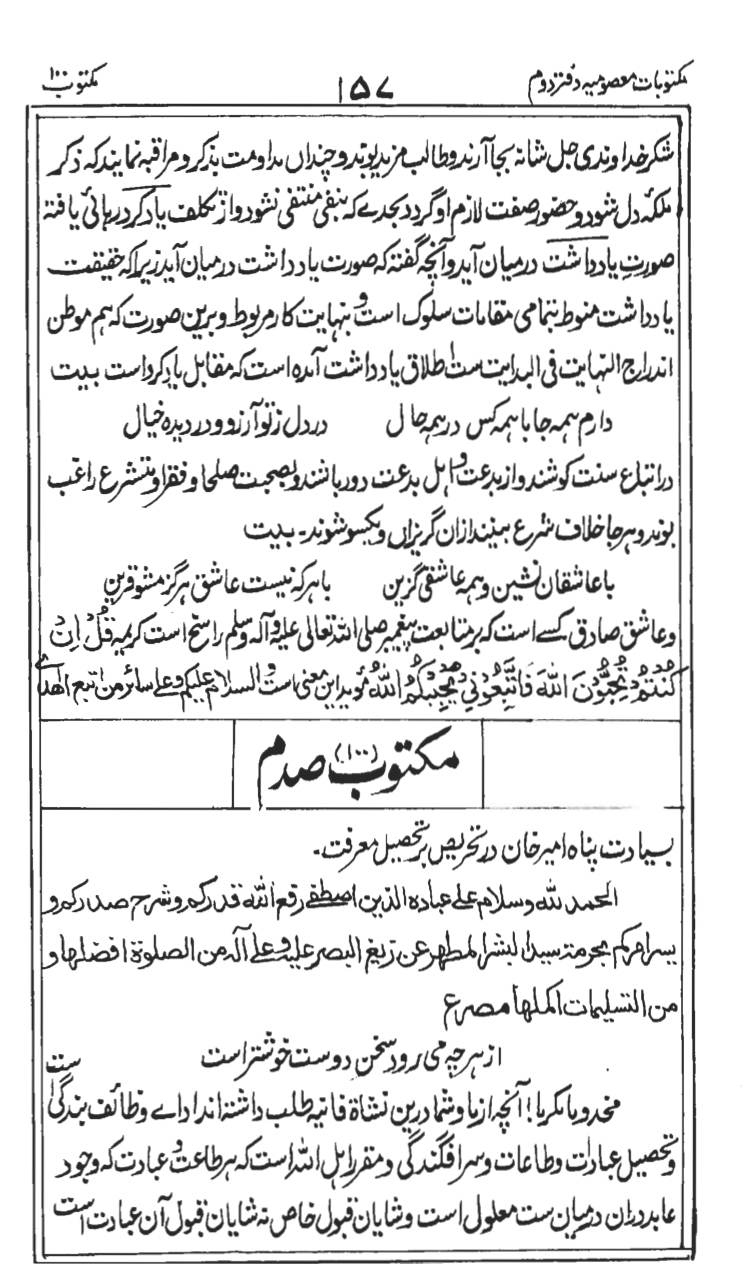 مکتوبات معصومیہ دفتر دوم ۱۵۷ مکتوب ۱۰۰
شکر خداوندی جل شانہ بجا آرند و طالب مزید بوند و چنداں مداومت بذکر و مراقبہ نمایند کہ ذکر
ملکۂ دل شود و حضور صفت لازم او گردد بحدے کہ بنفی منتفی نشود و از تکلف یاد کرد رہائی یافتہ
صورتِ یادداشت درمیان آید و آنچہ گفتہ کہ صورت یادداشت درمیان آید زیرا کہ حقیقت
یادداشت منوط بتمامی مقامات سلوک است و بنہایت کار مربوط و برین صورت کہ ہم موطن
اندراج النہایت فی البدایت ست اطلاق یادداشت آمدہ است کہ مقابل یاد کرد است بیت
دارم ہمہ جا با ہمہ کس در ہمہ حال در دل ز تو آرزو و در دیدہ خیال
در اتباع سنت کوشند و از بدعت و اہل بدعت دور باشند و بصحبت صلحا و فقراء متشرع راغب
بوند و ہر جا خلاف شرع بینند ازان گریزاں و یکسو شوند۔ بیت
با عاشقان نشین و ہمہ عاشقی گزین با ہر کہ نیست عاشق ہرگز مشو قرین
و عاشق صادق کسے است کہ بر متابعت پیغمبر صلی اللہ تعالی علیہ و آلہ وسلم راسخ است کریمہ قُلْ اِنْ
كُنْتُمْ تُحِبُّوْنَ اللهَ فَاتَّبِعُوْنِي يُحْبِبْكُمُ اللهُ مؤید این معنی است و السلام علیکم و علی سائر من اتبع الهدى
مکتوب (۱۰۰) صدم
بسیادت پناہ امیر خان در تحریص بر تحصیل معرفت۔
الحمد للہ و سلام علی عبادہ الذین اصطفے رفع اللہ قدرکم و شرح صدرکم و
یسر امرکم بحرمة سید البشر المطهر عن زیغ البصر علیہ و علی آلہ من الصلوة افضلها و
من التسلیمات اکملها مصرع
از ہر چہ می رود سخن دوست خوشتر است
مخدوما مکرما! آنچہ از ما و شما درین نشاۃ فانیہ طلب داشتہ اند اداے وظائف بندگی ست
و تحصیل عبادات و طاعات و سرافگندگی و مقرر اہل اللہ است کہ ہر طاعت و عبادت کہ وجود
عابد دران درمیان ست معلول است و شایان قبول خاص نہ شایان قبول آن عبادت است